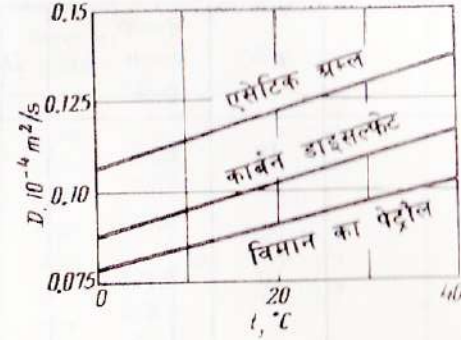 0.15
0.125
0.10
0.075
D, 10⁻⁴ m²/s
एसेटिक ग्रम्ल
कार्बन डाइसल्फेट
विमान का पेट्रौल
0
20
40
t, °C